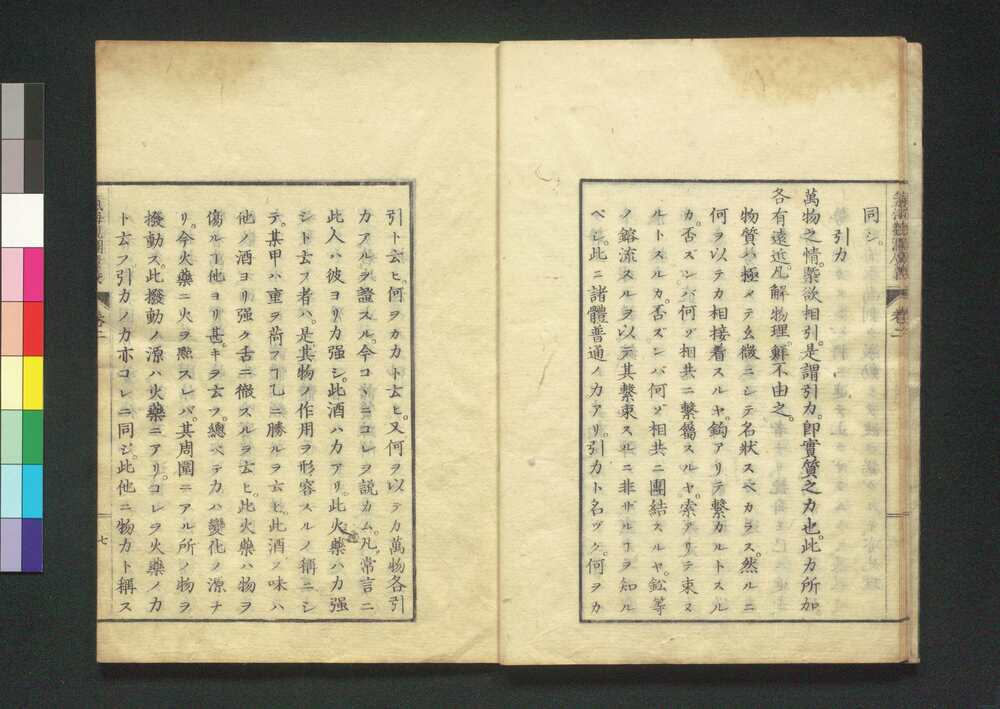 同シ。
引力
萬物之情。槩欲相引。是謂引力。卽實質之力也。此力所加
各有遠近。凡解物理。鮮不由之。
物質ハ極メテ幺微ニシテ名狀スベカラス。然ルニ
何ヲ以テカ相接着スルヤ。鉤アリテ繫カルトスル
カ。否ズンバ何ゾ相共ニ繫屬スルヤ。索アリテ束ヌ
ルトスルカ。否ズンバ何ゾ相共ニ團結スルヤ。鈆等
ノ鎔流スルヲ以テ其繫束スルニ非ザルヿヲ知ル
ベシ。此ニ諸體普通ノ力アリ。引力ト名ヅク。何ヲカ
卷二
引ト云ヒ。何ヲカ力ト云ヒ。又何ヲ以テカ萬物各引
力アルヲ證スル。今コヽニコレヲ說カム。凡常言ニ
此人ハ彼ヨリ力强シ。此酒ハ力アリ。此火藥ハ力强
シト云フ者ハ。是其物ノ作用ヲ形容スルノ稱ニシ
テ。其甲ハ重ヲ荷フヿ乙ニ勝ルヲ云ヒ。此酒ノ味ハ
他ノ酒ヨリ强ク舌ニ徹スルヲ云ヒ。此火藥ハ物ヲ
傷ルヿ他ヨリ甚キヲ云フ。總ベテ力ハ變化ノ源ナ
リ。今火藥ニ火ヲ㸃スレバ。其周圍ニアル所ノ物ヲ
撥動ス。此撥動ノ源ハ火藥ニアリ。コレヲ火藥ノ力
ト云フ。引力ノ力亦コレニ同ジ。此他ニ物力ト稱ス
卷二
七